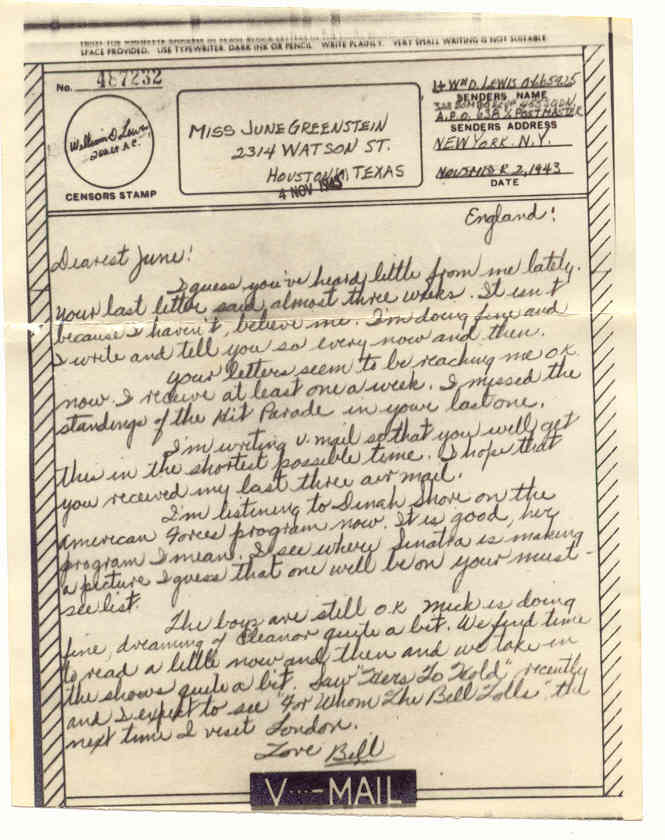 SPACE PROVIDED. USE TYPEWRITER, DARK INK OR PENCIL. WRITE PLAINLY. VERY SMALL WRITING IS NOT SUITABLE.
No. 487232
William D. Lewis
2nd Lt. A.C.
CENSORS STAMP
MISS JUNE GREENSTEIN
2314 WATSON ST.
HOUSTON, TEXAS
4 NOV 1943
Lt WM D. LEWIS
SENDERS NAME
A.P.O. 638 % POSTMASTER
SENDERS ADDRESS
NEW YORK. N.Y.
NOVEMBER 2, 1943
DATE
England!
Dearest June!
I guess you've heard little from me lately.
Your last letter said almost three weeks. It isn't
because I haven't, believe me. I'm doing fine and
I write and tell you so every now and then.
Your letters seem to be reaching me OK
now. I receive at least one a week. I missed the
standings of the Hit Parade in your last one.
I'm writing V-mail so that you will get
this in the shortest possible time. I hope that
you received my last three air mail.
I'm listening to Dinah Shore on the
American Forces program now. It is good, her
program I mean. I see where Sinatra is making
a picture I guess that one will be on your must-
see list.
The boys are still O.K. Mick is doing
fine, dreaming of Eleanor quite a bit. We find time
to read a little now and then and we take in
the shows quite a bit. Saw "Hers To Hold" recently
and I expect to see "For Whom The Bell Tolls" the
next time I visit London.
Love Bill
V···-MAIL